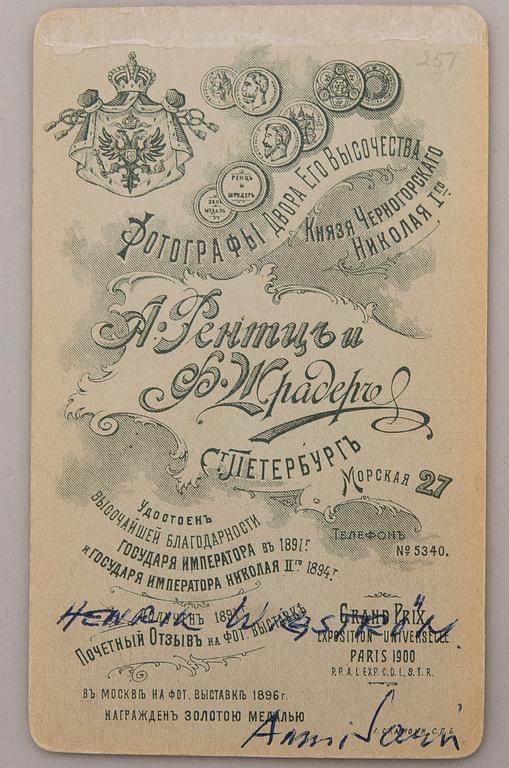 251
РЕНЦЪ
И
ШРАДЕРЪ
Фотографы Двора Его Высочества
Князя Черногорскаго
Николая Iго
А. Рентцъ и
Ф. Шрадеръ
С ПЕТЕРБУРГЪ
Морская 27
Телефонъ
№ 5340.
Удостоенъ
ВЫСОЧАЙШЕЙ БЛАГОДАРНОСТИ
ГОСУДАРЯ ИМПЕРАТОРА въ 1891 г.
и ГОСУДАРЯ ИМПЕРАТОРА НИКОЛАЯ IIго 1894 г.
HENRIK
Почетный Отзывъ на фот. выставкѣ
GRAND PRIX
EXPOSITION UNIVERSELLE
PARIS 1900
P.P. À L'EXP. C.D.L.S.T.R.
въ Москвѣ на фот. выставкѣ 1896 г.
награжденъ золотою медалью